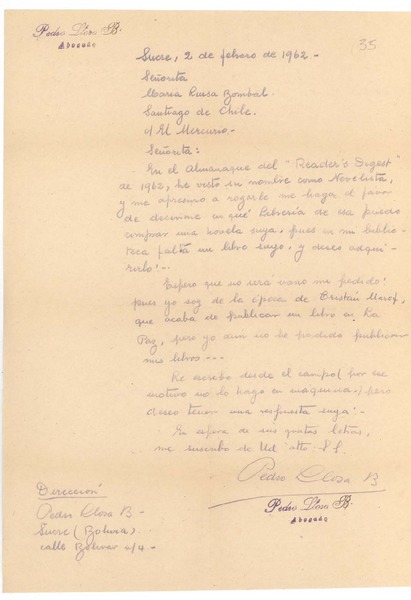 Pedro Llosa B.
Abogado
35
Sucre, 2 de febrero de 1962.-
Señorita
María Luisa Bombal.
Santiago de Chile.
El Mercurio.-
Señorita:
En el Almanaque del "Reader's Digest"
de 1962, he visto su nombre como Novelista,
y me apresuro a rogarle me haga el favor
de decirme en qué librería de esa puedo
comprar una novela suya, pues en mi biblio-
teca falta un libro suyo, y deseo adqui-
rirlo!-
Espero que no será vano mi pedido!
pues yo soy de la época de Tristán Marof,
que acaba de publicar un libro en La
Paz, pero yo aún no he podido publicar
mis libros...
Le escribo desde el campo (por ese
motivo no lo hago en maquina,) pero
deseo tener una respuesta suya.-
En espera de sus gratas letras,
me suscribo de Ud atto. S.S.
Pedro Llosa B
Pedro Llosa B.
Abogado
Dirección
Pedro Llosa B-
Sucre (Bolivia)
calle Bolívar